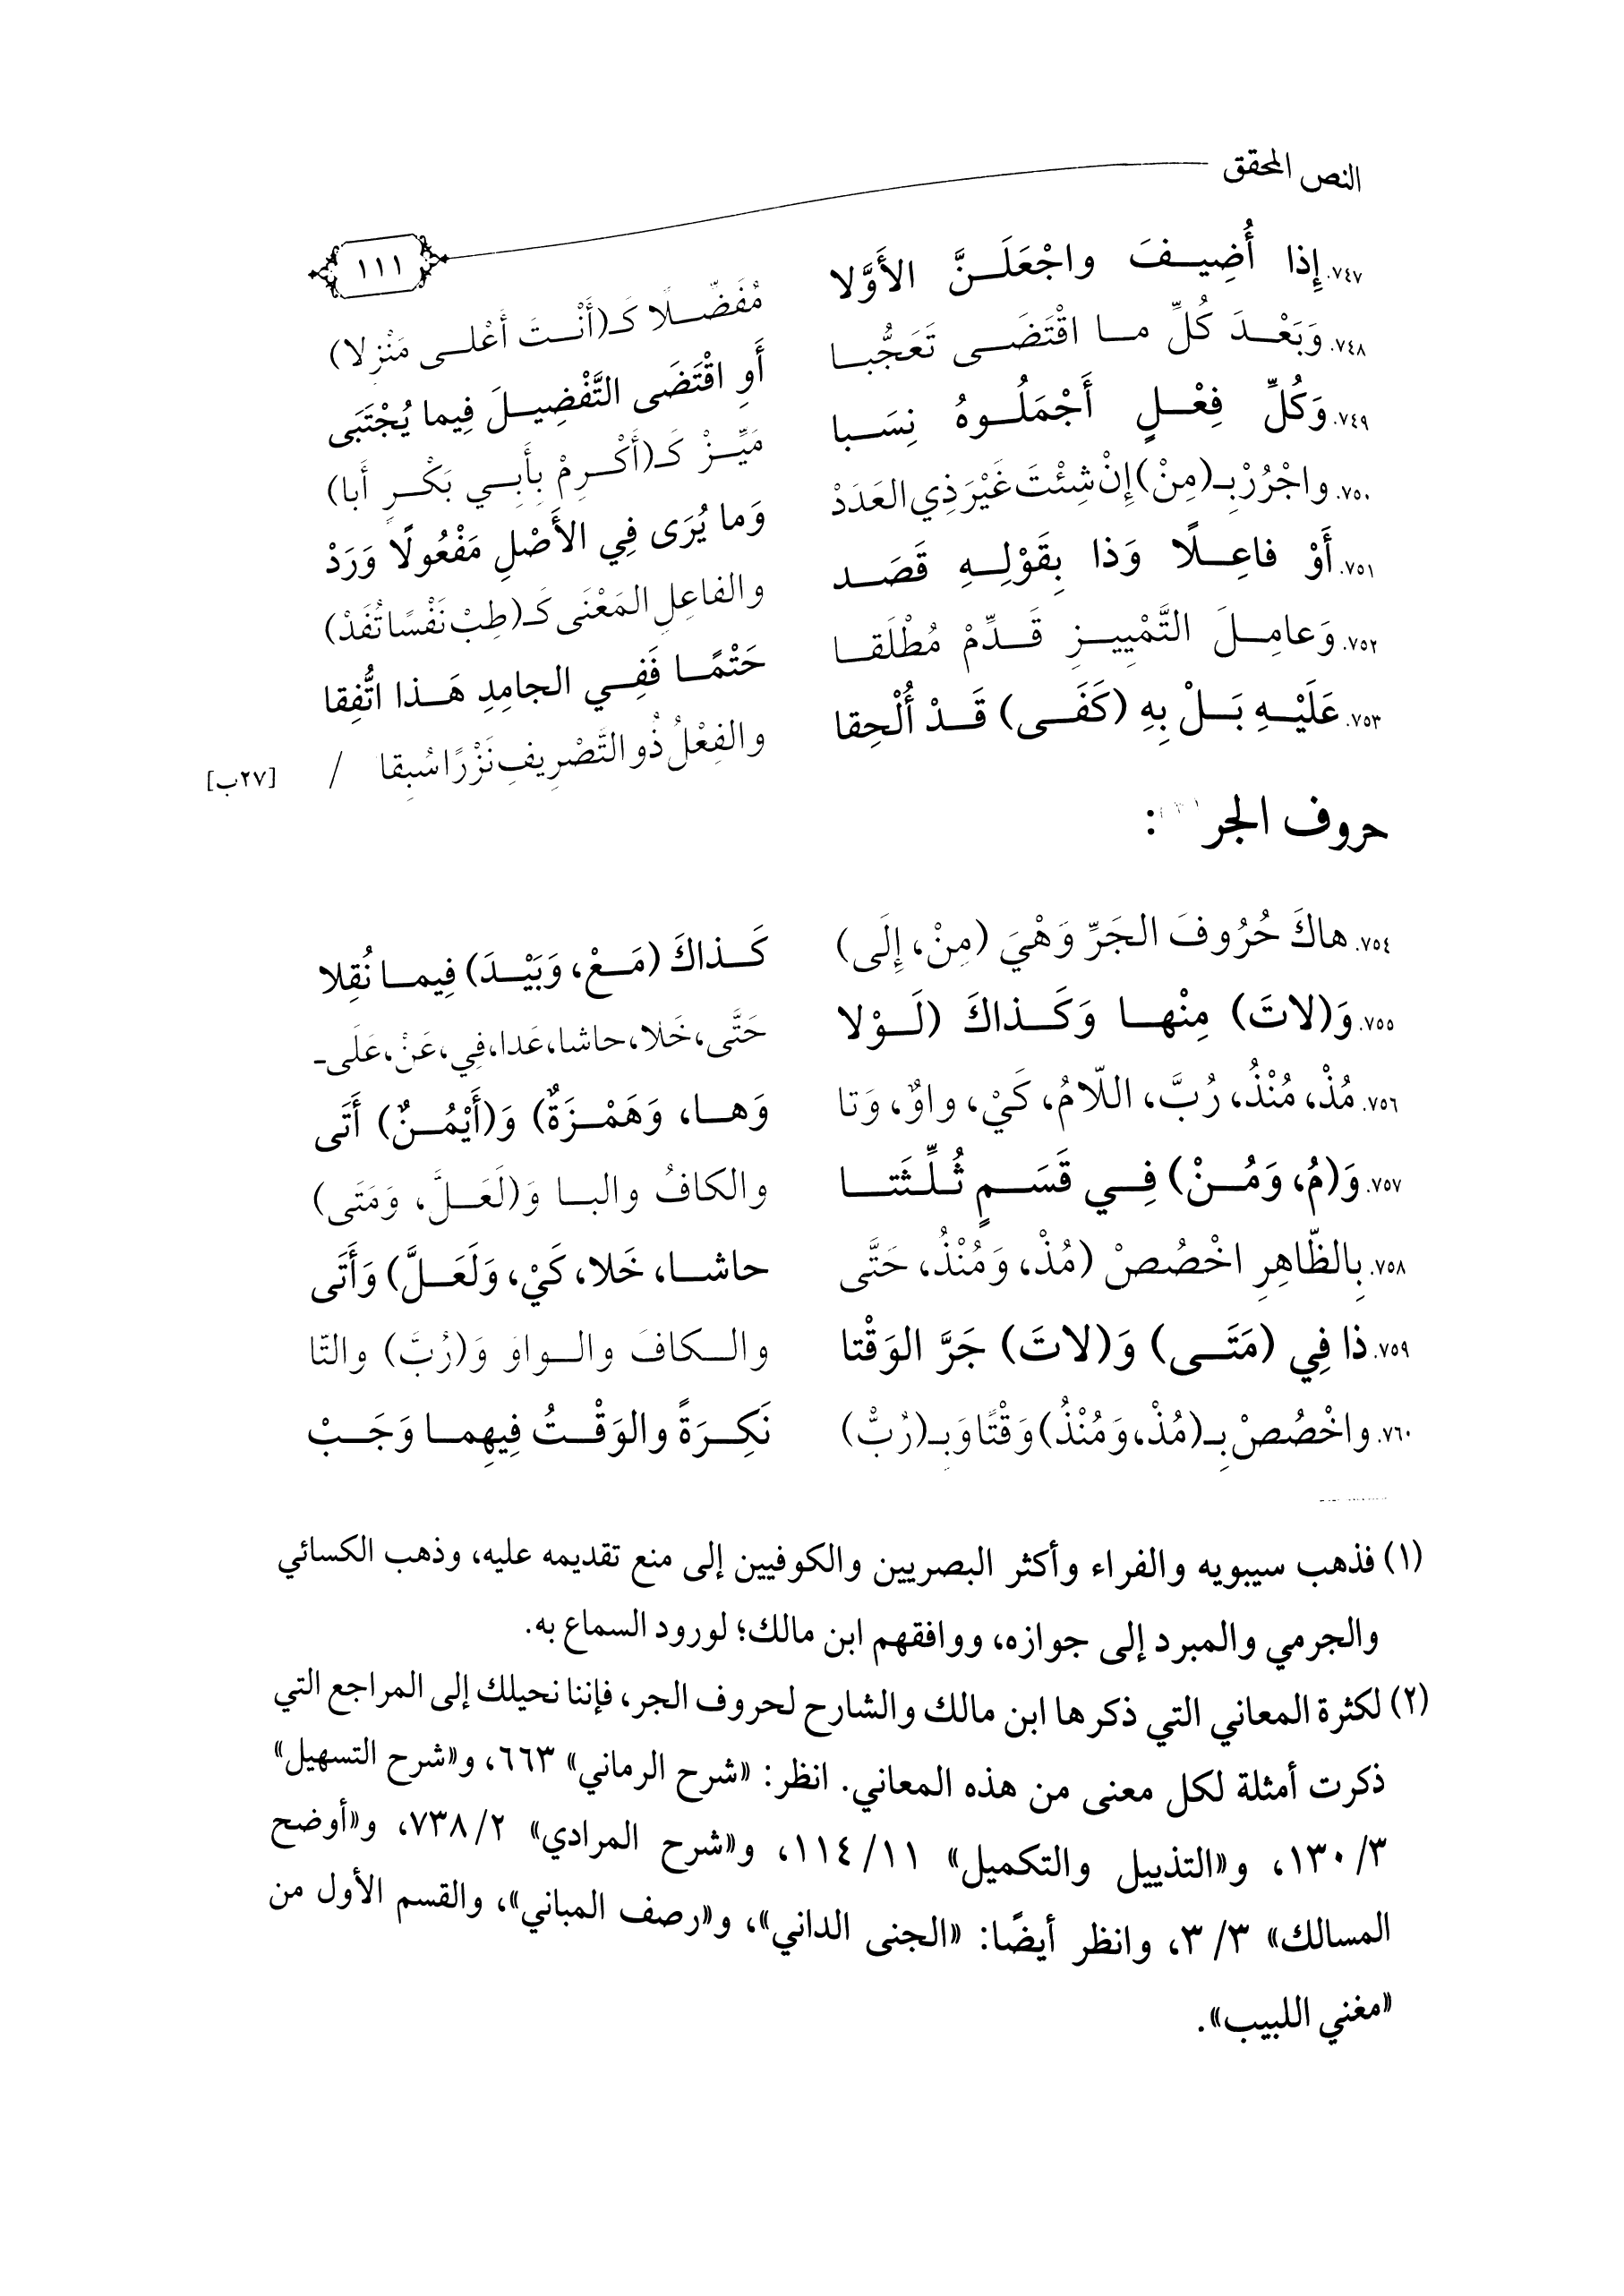 النص المحقق
١١١
٧٤٧. إِذا أُضِيفَ واجْعَلَنَّ الأَوَّلا مُفَضَّلًا كَـ(أَنْتَ أَعْلى مَنْزِلا)
٧٤٨. وَبَعْدَ كُلِّ ما اقْتَضَى تَعَجُّبا أَوِ اقْتَضَى التَّفْضِيلَ فِيما يُجْتَبَى
٧٤٩. وَكُلِّ فِعْلٍ أَجْمَلُوهُ نِسَبا مَيِّزْ كَـ(أَكْرِمْ بِأَبِي بَكْرٍ أَبا)
٧٥٠. واجْرُرْ بِـ(مِنْ) إِنْ شِئْتَ غَيْرَ ذِي العَدَدْ وَما يُرَى فِي الأَصْلِ مَفْعُولًا وَرَدْ
٧٥١. أَوْ فاعِلًا وَذا بِقَوْلِهِ قَصَد والفاعِلِ المَعْنَى كَـ(طِبْ نَفْسًا تُفَدْ)
٧٥٢. وَعامِلَ التَّمْيِيزِ قَدِّمْ مُطْلَقا حَتْمًا فَفِي الجامِدِ هَذا اتُّفِقا
٧٥٣. عَلَيْهِ بَلْ بِهِ (كَفَى) قَدْ أُلْحِقا والفِعْلُ ذُو التَّصْرِيفِ نَزْرًا سُبِقا / [٢٧ب]
حروف الجر :
٧٥٤. هاكَ حُرُوفَ الجَرِّ وَهْيَ (مِنْ، إِلَى) كَذاكَ (مَعْ، وَبَيْدَ) فِيما نُقِلا
٧٥٥. وَ(لاتَ) مِنْها وَكَذاكَ (لَوْلا حَتَّى، خَلا، حاشا، عَدا، فِي، عَنْ، عَلَى-
٧٥٦. مُذْ، مُنْذُ، رُبَّ، اللّامُ، كَيْ، واوٌ، وَتا وَها، وَهَمْزَةٌ) وَ(أَيْمُنٌ) أَتَى
٧٥٧. وَ(مُ، وَمُنْ) فِي قَسَمٍ ثُلِّثَتا والكافُ والبا وَ(لَعَلَّ، وَمَتَى)
٧٥٨. بِالظّاهِرِ اخْصُصْ (مُذْ، وَمُنْذُ، حَتَّى حاشا، خَلا، كَيْ، وَلَعَلَّ) وَأَتَى
٧٥٩. ذا فِي (مَتَى) وَ(لاتَ) جَرَّ الوَقْتا والكافَ والواوَ وَ(رُبَّ) والتّا
٧٦٠. واخْصُصْ بِـ(مُذْ، وَمُنْذُ) وَقْتًا وَبِـ(رُبْ) نَكِرَةً والوَقْتُ فِيهِما وَجَبْ
(١) فذهب سيبويه والفراء وأكثر البصريين والكوفيين إلى منع تقديمه عليه، وذهب الكسائي
والجرمي والمبرد إلى جوازه، ووافقهم ابن مالك؛ لورود السماع به.
(٢) لكثرة المعاني التي ذكرها ابن مالك والشارح لحروف الجر، فإننا نحيلك إلى المراجع التي
ذكرت أمثلة لكل معنى من هذه المعاني. انظر: «شرح الرماني» ٦٦٣، و«شرح التسهيل»
٣/ ١٣٠، و«التذييل والتكميل» ١١/ ١١٤، و«شرح المرادي» ٢/ ٧٣٨، و«أوضح
المسالك» ٣/ ٣، وانظر أيضًا: «الجنى الداني»، و«رصف المباني»، والقسم الأول من
«مغني اللبيب».